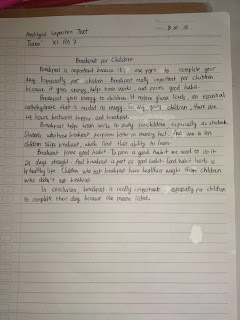 Analytical Exposition Text
Name XI IPA 7
Breakfast for Children
Breakfast is important because it's use part to complete your
day. Especially for children. Breakfast really important for children
because it gives energy, helps brain works, and forms good habit.
Breakfast gives energy to children. It restore glucose levels, an essential
carbohydrate that is needed as energy. In growing children, there are
hours between dinner and breakfast.
Breakfast helps brain works to study for children, especially as students.
Students who have breakfast perform better in memory test. And one in ten
children skips breakfast, which limit their ability to learn.
Breakfast forms good habit. To form a good habit we need to do it
days straight. And breakfast is part of good habit. Good habit leads to
healthy life. Children who eat breakfast have healthier weight than children
who didn't eat breakfast.
In conclusion, breakfast is really important especially for children
to complete their day because the reasons listed.